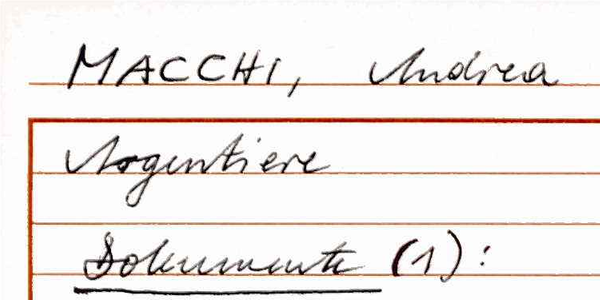 MACCHI, Andrea
Argentiere
Dokumente (1):